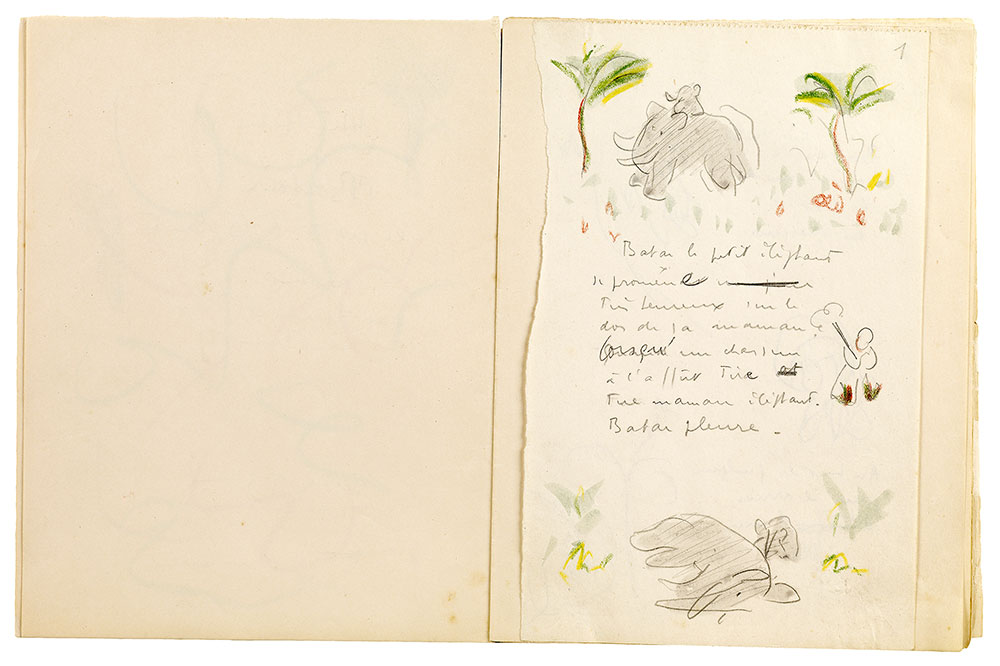 1
Babar le petit éléphant
se promène un jour
très heureux sur le
dos de sa maman
lorsqu' un chasseur
à l'affût tire et
tue maman éléphant.
Babar pleure.